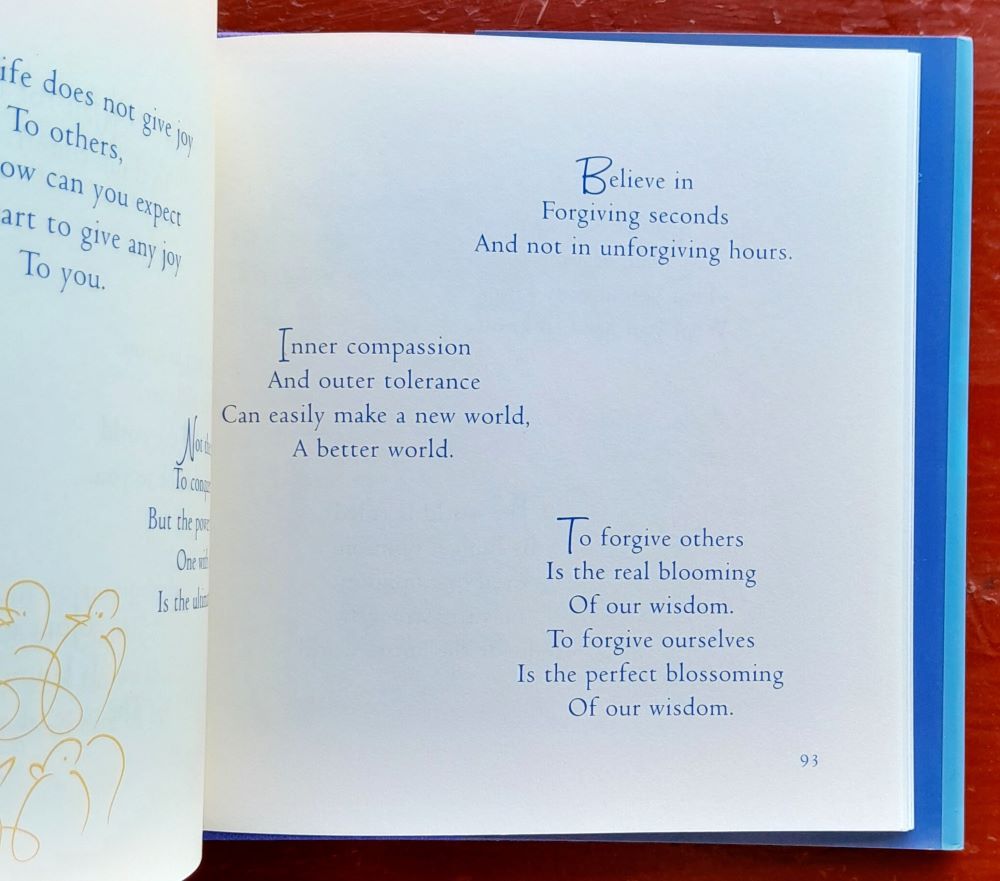 does not give joy
To others,
can you expect
to give any joy
To you.
To
But the
One
Is the
Believe in
Forgiving seconds
And not in unforgiving hours.
Inner compassion
And outer tolerance
Can easily make a new world,
A better world.
To forgive others
Is the real blooming
Of our wisdom.
To forgive ourselves
Is the perfect blossoming
Of our wisdom.
93